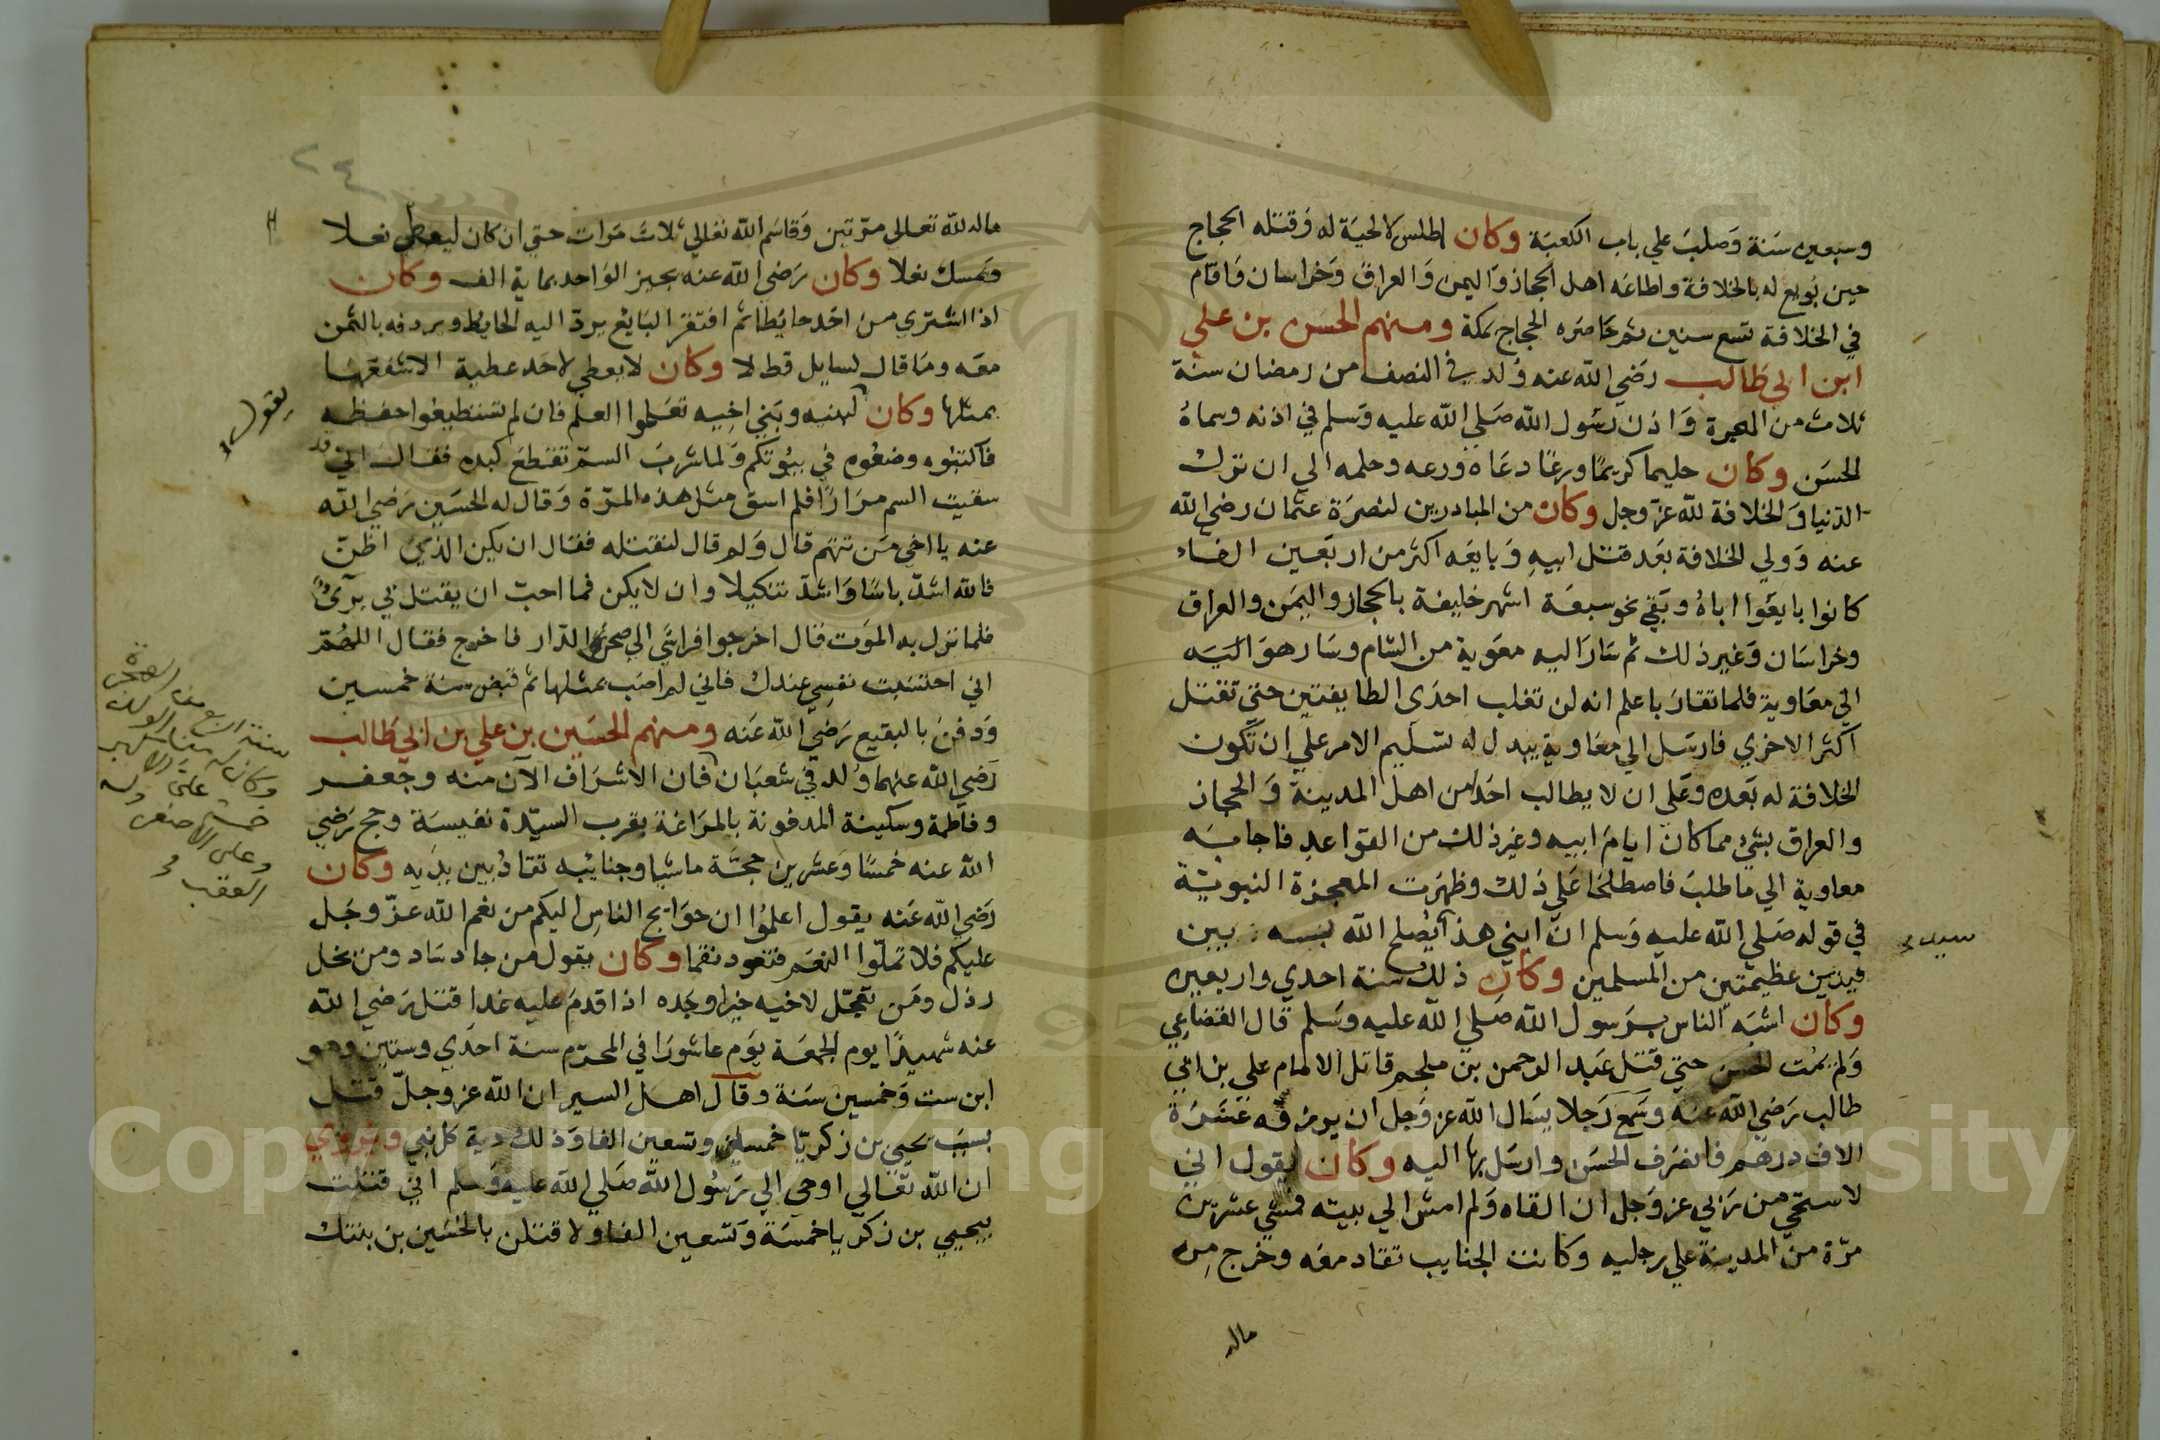 وسبعين سنة وصلب علي باب الكعبة وكان اطلس لالحية له وقتله الحجاج
حين بويع له بالخلافة واطاعه اهل الحجاز واليمن والعراق وخراسان واقام
في الخلافة تسع سنين ثم حاصره الحجاج بمكة ومنهم الحسن بن علي
ابن ابي طالب رضي الله عنه ولد في النصف من رمضان سنة
ثلاث من الهجرة واذن رسول الله صلي الله عليه وسلم في اذنه وسماه
الحسن وكان حليما كريمًا ورعًا دعاه ورعه وحلمه الي ان ترك
الدنيا والخلافة لله عز وجل وكان من المبادرين لنصرة عثمان رضي الله
عنه وولي الخلافة بعد قتل ابيه وبايعه اكثر من اربعين الفاء
كانوا بايعوا اباه وبقي نحو سبعة اشهر خليفة بالحجاز واليمن والعراق
وخراسان وغير ذلك ثم سار اليه معوية من الشام وسار هو اليه
الي معاوية فلما تقاربا علم انه لن تغلب احدي الطايفتين حتي تقتل
اكثر الاخري فارسل الي معاوية يبدل له تسليم الامر علي ان تكون
الخلافة له بعده وعلي ان لا يطالب احدا من اهل المدينة والحجاز
والعراق بشي مما كان ايام ابيه وغير ذلك من القواعد فاجابه
معاوية الي ما طلب فاصطلحا علي ذلك وظهرت المعجزة النبوية
في قوله صلي الله عليه وسلم ان ابني هذا يصلح الله به بين
سيد
فيتين عظيمتين من المسلمين وكان ذلك سنة احدي واربعين
وكان اشبه الناس برسول الله صلي الله عليه وسلم قال القضاعي
ولم يمت الحسن حتي قتل عبد الرحمن بن ملجم قاتل الامام علي بن ابي
طالب رضي الله عنه وسمع رجلا يسال الله عز وجل ان يرزقه عشرة
الاف درهم فانصرف الحسن وارسل بها اليه وكان يقول اني
لاستحي من ربي عز وجل ان القاه ولم امش الي بيته فمشي عشرين
مرة من المدينة علي رجليه وكانت الجنايب تقاد معه وخرج من
ماله
٢٤
ماله لله تعالى مرتين وقاسم الله تعالي ثلاث مرات حتي ان كان ليعطي نعلا
ويمسك نعلا وكان رضي الله عنه يجيز الواحد بماية الف وكان
اذا اشتري من احد حايطا ثم افتقر البايع يرد اليه الحايط ويردفه بالثمن
معه وما قال لسايل قط لا وكان لا يعطي لاحد عطية الا شفعها
بمثلها وكان لبنيه وبني اخيه تعلموا العلم فان لم تستطيعوا حفظه
يقول
فاكتبوه وضعوه في بيوتكم ولما شرب السم تقطع كبده فقال اني قد
سقيت السم مرارًا فلم اسق مثل هذه المرة وقال له الحسين رضي الله
عنه يا اخي من تتهم قال ولم قال لنقتله فقال ان يكن الذي اظن
فالله اشد باسًا واشد تنكيلا وان لا يكن فما احب ان يقتل بي بريء
فلما نزل به الموت قال اخرجوا فراشي الي صحن الدار فاخرج فقال اللهم
اني احتسبت نفسي عندك فاني لم اصب بمثلها ثم قبض سنة خمسين
ودفن بالبقيع رضي الله عنه ومنهم الحسين بن علي بن ابي طالب
رضي الله عنهما ولد في شعبان فان الاشراف الآن منه وجعفر
سنة اربع من الهجرة
وكان له من الولد
علي الاكبر
وعلى الاصغر وله
العقب
وفاطمة وسكينة المدفونة بالمراغة بقرب السيدة نفيسة وحج رضي
الله عنه خمسًا وعشرين حجة ماشيا وجنايبه تقاد بين يديه وكان
رضي الله عنه يقول اعلموا ان حوايج الناس اليكم من نعم الله عز وجل
عليكم فلا تملوا النعم فتعود نقما وكان يقول من جاد ساد ومن بخل
رذل ومن تعجل لاخيه خيرا وجده اذا قدم عليه غدا قتل رضي الله
عنه شهيدًا يوم الجمعة يوم عاشورا في المحرم سنة احدي وستين وهو
ابن ست وخمسين سنة وقال اهل السير ان الله عز وجل قتل
بسبب يحيي بن زكريا خمسا وتسعين الفا وذلك دية كل نبي ويروي
ان الله تعالي اوحي الي رسول الله صلي الله عليه وسلم اني قتلت
بيحيي بن زكريا خمسة وتسعين الفا ولاقتلن بالحسين بن بنتك
Copyright © King Saud University